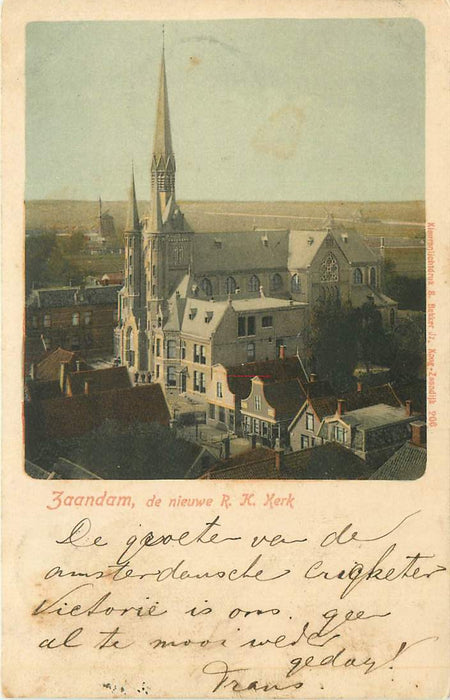 Zaandam, de nieuwe R. K. Kerk
De groeten van de
amsterdamsche Crigketer
Victorie is ons. geen
al te mooi weder
gedag!
Frans
Kleurenlichtdruk S. Bakker Jz., Koog-Zaandijk 206